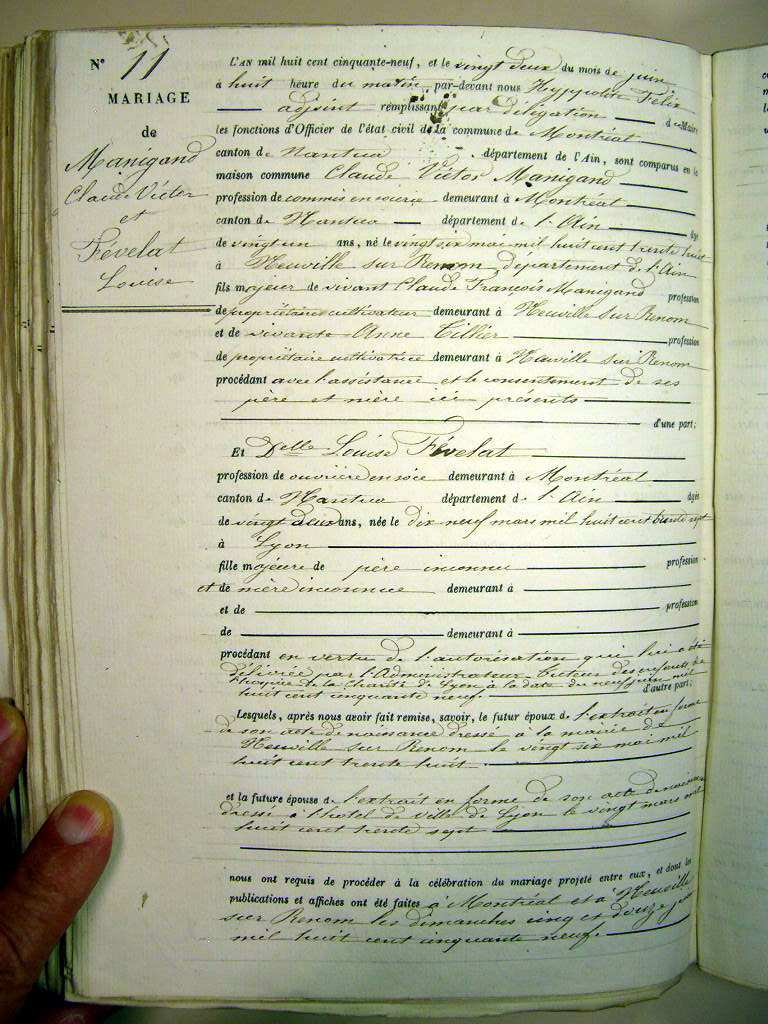 N° 11
MARIAGE
de
Manigand
Claude Victor
et
Févelat
Louise
L'AN mil huit cent cinquante-neuf, et le vingt deux du mois de juin
à huit heure du matin, par-devant nous Hyppolite Félix
adjoint remplissant par délégation du Maire
les fonctions d'Officier de l'état civil de la commune de Montréal
canton de Nantua département de l'Ain, sont comparus en la
maison commune Claude Victor Manigand
profession de commis en soierie demeurant à Montréal
canton de Nantua département de l'Ain âgé
de vingt un ans, né le vingt six mai mil huit cent trente huit
à Neuville sur Renom, département de l'Ain
fils majeur de vivant Claude François Manigand profession
de propriétaire cultivateur demeurant à Neuville sur Renom
et de vivante Anne Tillier profession
de propriétaire cultivatrice demeurant à Neuville sur Renom
procédant avec l'assistance et le consentement de ses
père et mère ici présents
d'une part;
Et Delle Louise Févelat
profession de ouvrière en soie demeurant à Montréal
canton de Nantua département de l'Ain âgée
de vingt deux ans, née le dix neuf mars mil huit cent trente sept
à Lyon
fille majeure de père inconnu profession
et de mère inconnue demeurant à
et de profession
de demeurant à
procédant en vertu de l'autorisation qui lui a été
délivrée par l'Administrateur Tuteur des enfants de
l'hospice de la Charité de Lyon à la date du neuf juin mil
huit cent cinquante neuf d'autre part;
Lesquels, après nous avoir fait remise, savoir, le futur époux de l'extrait en forme
de son acte de naissance dressé à la mairie de
Neuville sur Renom le vingt six mai mil
huit cent trente huit
et la future épouse de l'extrait en forme de son acte de naissance
dressé à l'hotel de Ville de Lyon le vingt mars mil
huit cent trente sept
nous ont requis de procéder à la célébration du mariage projeté entre eux, et dont les
publications et affiches ont été faites à Montréal et à Neuville
sur Renom les dimanches cinq et douze juin
mil huit cent cinquante neuf